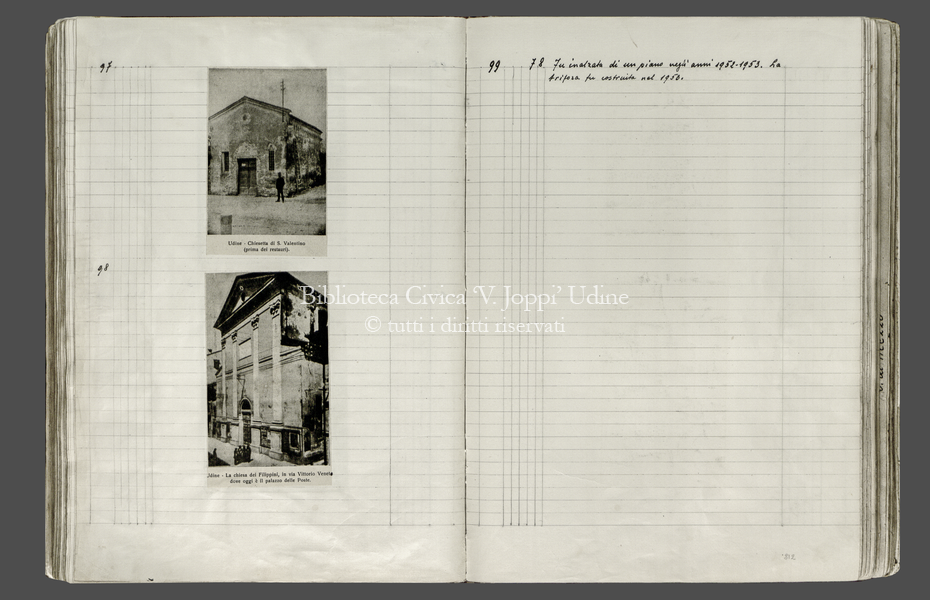 97
Udine - Chiesetta di S. Valentino
(prima dei restauri).
98
Udine - La chiesa dei Filippini, in via Vittorio Veneto
dove oggi è il palazzo delle Poste.
99 78. Fu inalzata di un piano negli anni 1952-1953. La
trifora fu costruita nel 1950.
Biblioteca Civica 'V. Joppi' Udine
© tutti i diritti riservati